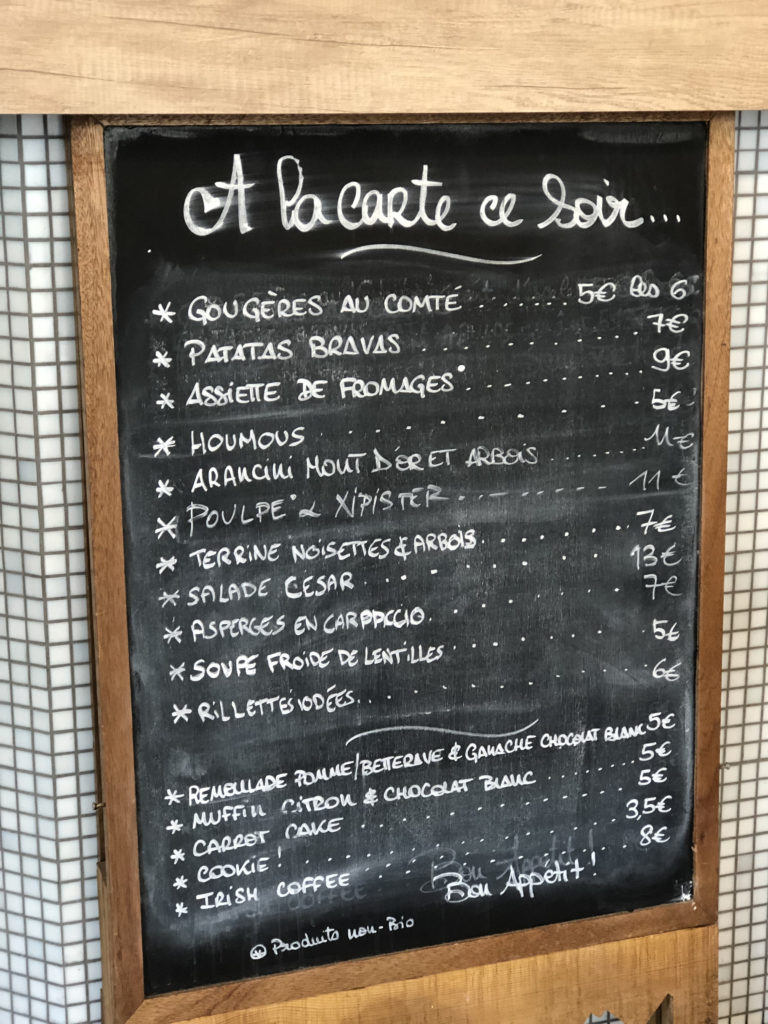 A la carte ce soir...
* GOUGÈRES AU COMTÉ ....... 5€ les 6
* PATATAS BRAVAS ....... 7€
* ASSIETTE DE FROMAGES* ....... 9€
* HOUMOUS ....... 5€
* ARANCINI MONT D'OR ET ARBOIS ....... 11€
* POULPE* & XIPISTER ....... 11€
* TERRINE NOISETTES & ARBOIS ....... 7€
* SALADE CESAR ....... 13€
* ASPERGES EN CARPACCIO ....... 7€
* SOUPE FROIDE DE LENTILLES ....... 5€
* RILLETTES IODÉES ....... 6€
* REMOULLADE POMME/BETTERAVE & GANACHE CHOCOLAT BLANC 5€
* MUFFIN CITRON & CHOCOLAT BLANC ....... 5€
* CARROT CAKE ....... 5€
* COOKIE ! ....... 3,5€
* IRISH COFFEE ....... 8€
Bon Appétit !
* Produits non-Bio